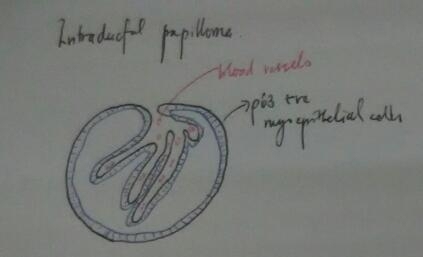 Intraductal papilloma.
blood vessels
p63 +ve
myoepithelial cells